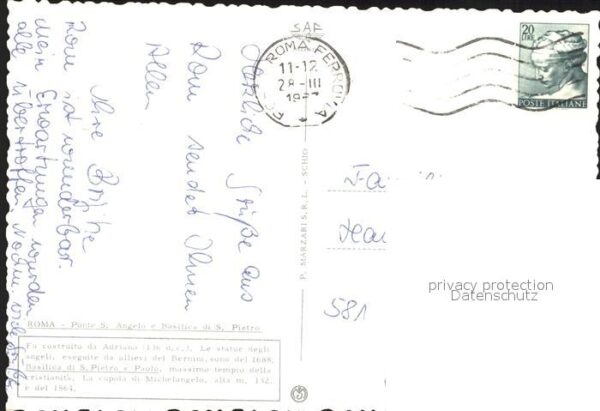 Herzliche Grüße aus
Rom sendet Ihnen
Allen
Ihre Brigitte
Rom ist wunderbar.
Mein Erwartungen wurden
alle übertroffen. Nochmals
ROMA FERROVIA
11-12
28-III
20
LIRE
POSTE ITALIANE
P. MARZARI S. R. L. - SCHIO
Fa
581
privacy protection
Datenschutz
ROMA - Ponte S. Angelo e Basilica di S. Pietro
Fu costruito da Adriano (136 d. c.). Le statue degli
angeli, eseguite da allievi del Bernini, sono del 1688.
Basilica di S. Pietro e Paolo, massimo tempio della
cristianità. La cupola di Michelangelo, alta m. 132,
e del 1564.